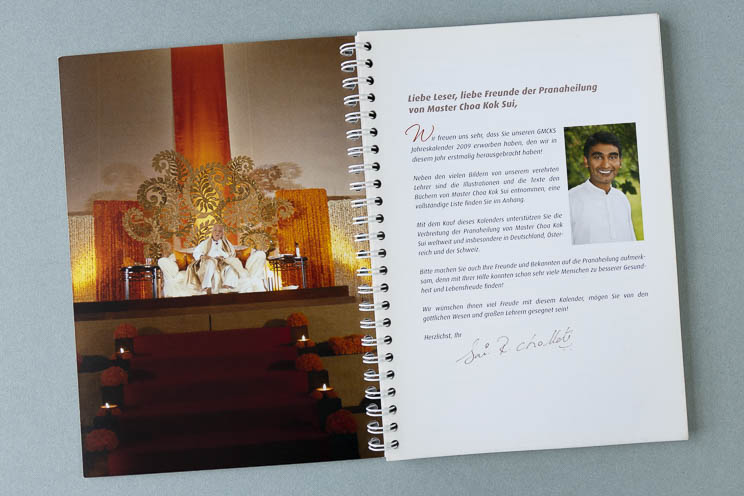 Liebe Leser, liebe Freunde der Pranaheilung
von Master Choa Kok Sui,
Wir freuen uns sehr, dass Sie unseren GMCKS
Jahreskalender 2009 erworben haben, den wir in
diesem Jahr erstmalig herausgebracht haben!
Neben den vielen Bildern von unserem verehrten
Lehrer sind die Illustrationen und die Texte den
Büchern von Master Choa Kok Sui entnommen, eine
vollständige Liste finden Sie im Anhang.
Mit dem Kauf dieses Kalenders unterstützen Sie die
Verbreitung der Pranaheilung von Master Choa Kok
Sui weltweit und insbesondere in Deutschland, Öster-
reich und der Schweiz.
Bitte machen Sie auch Ihre Freunde und Bekannten auf die Pranaheilung aufmerk-
sam, denn mit Ihrer Hilfe konnten schon sehr viele Menschen zu besserer Gesund-
heit und Lebensfreude finden!
Wir wünschen Ihnen viel Freude mit diesem Kalender, mögen Sie von den
göttlichen Wesen und großen Lehrern gesegnet sein!
Herzlichst, Ihr